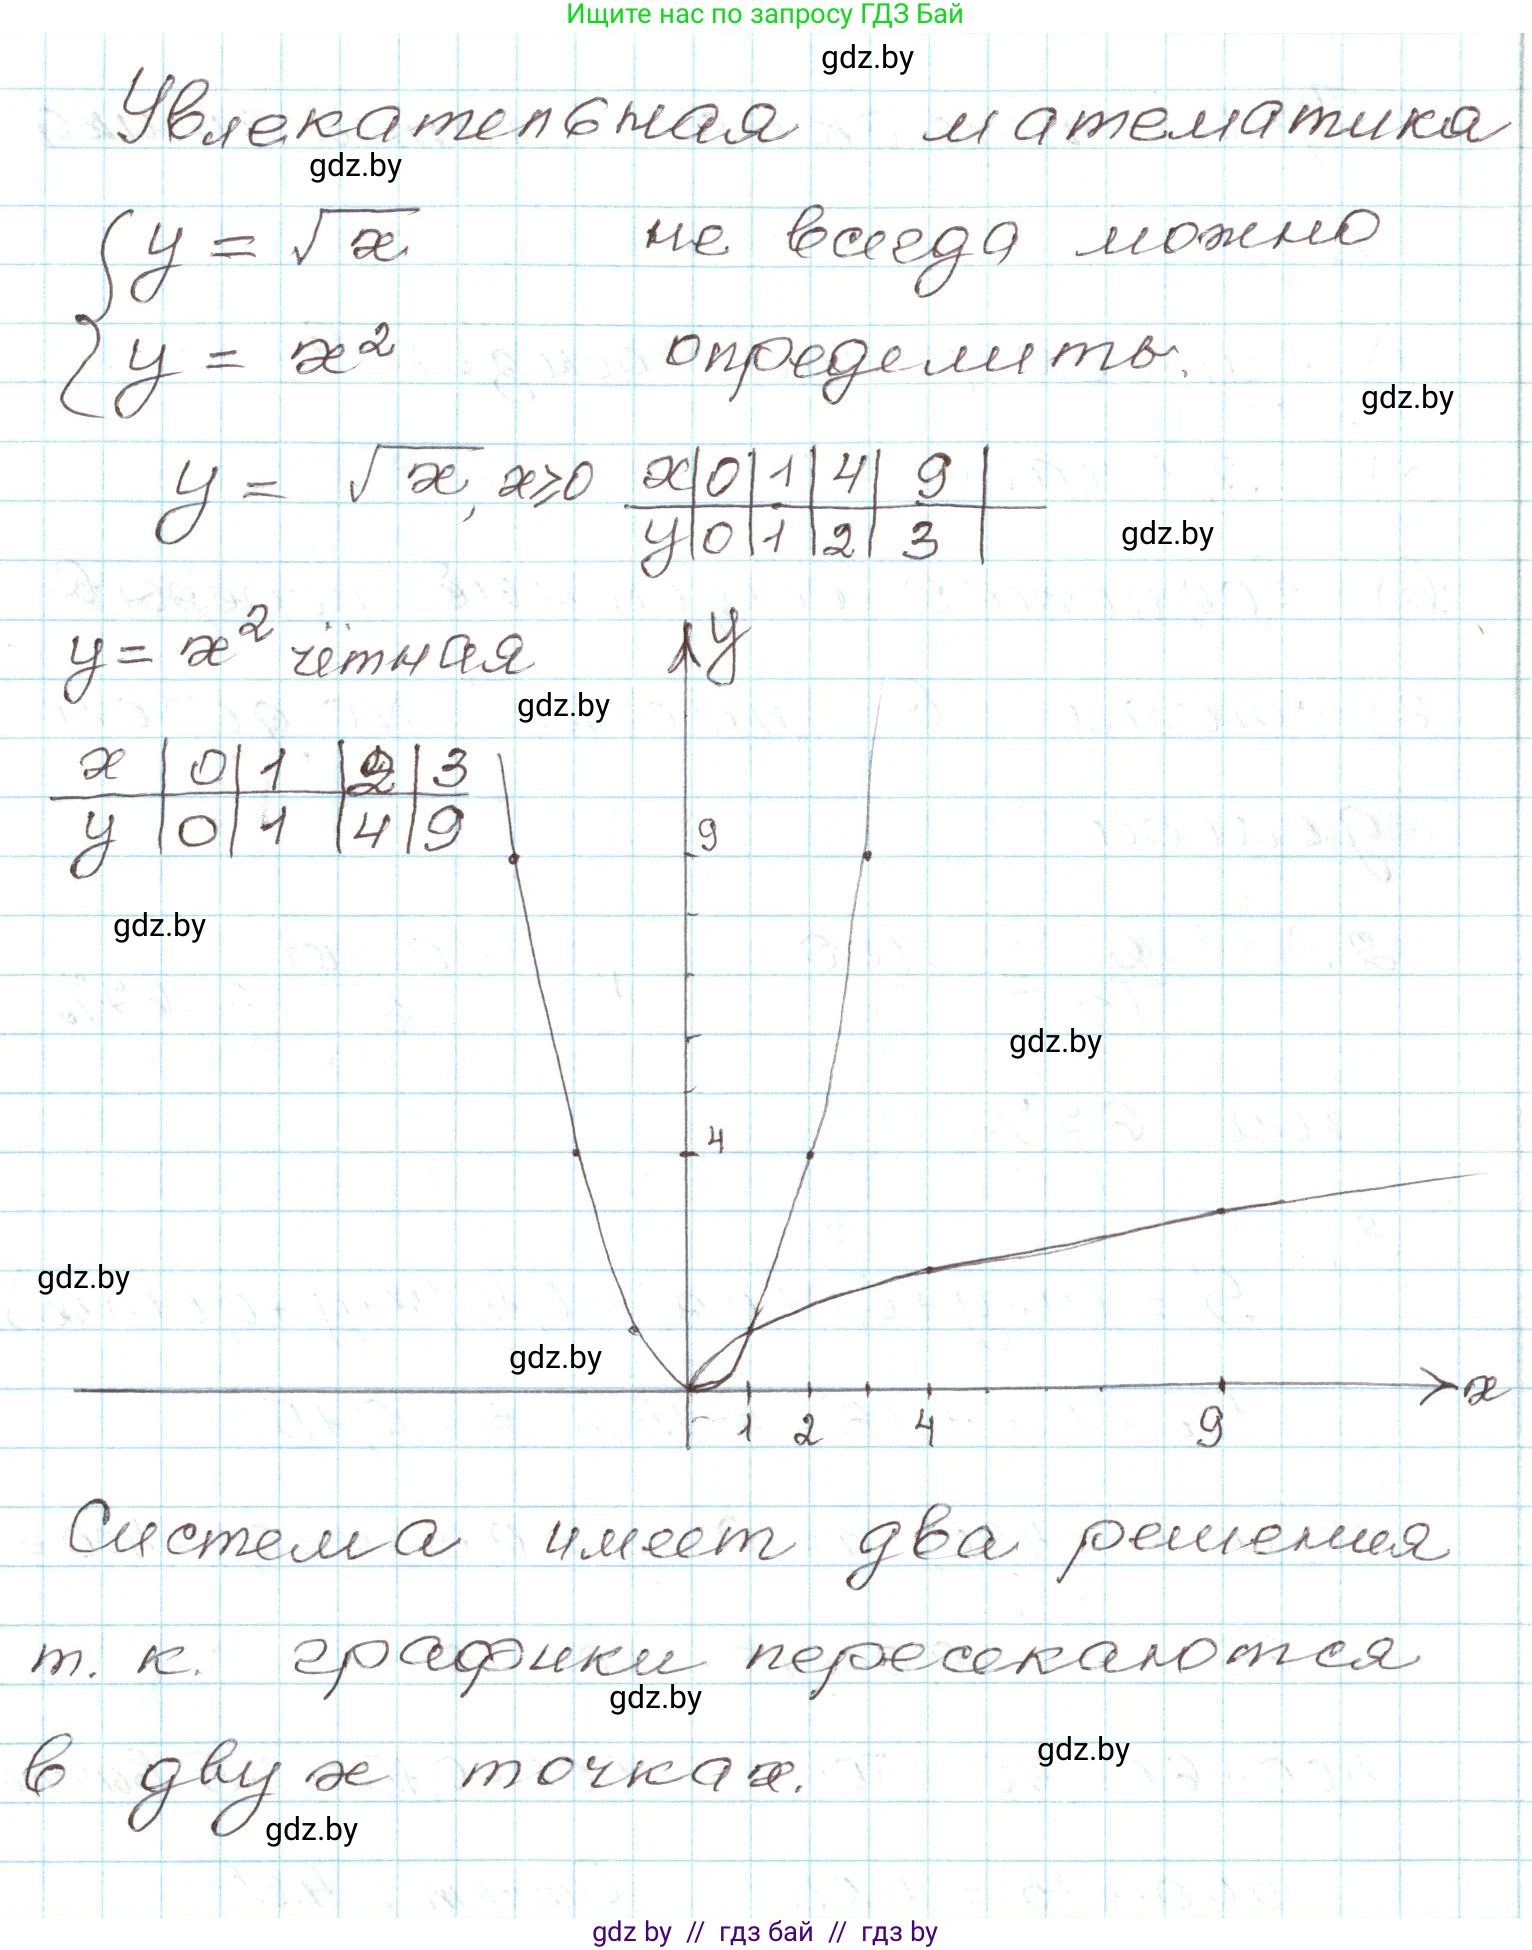 Ищите нас по запросу ГДЗ Бай
gdz.by
Увлекательная математика
gdz.by
y = √x не всегда можно
y = x² определить.
gdz.by
y = √x, x ≥ 0
x 0 1 4 9
y 0 1 2 3
gdz.by
y = x² чётная
y
gdz.by
x 0 1 2 3
y 0 1 4 9
9
gdz.by
gdz.by
4
gdz.by
gdz.by
x
1 2 4 9
Система имеет два решения
т. к. графики пересекаются
gdz.by
в двух точках.
gdz.by
gdz.by
gdz by // гдз бай // гдз by